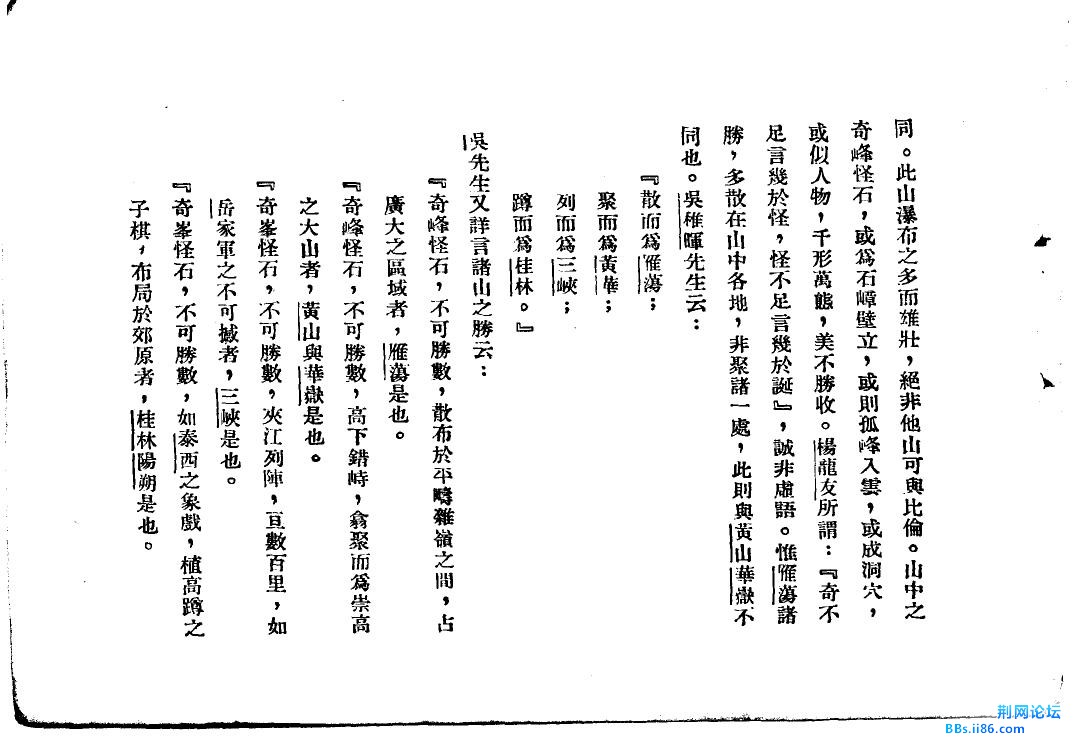 同。此山瀑布之多而雄壯，絕非他山可與比倫。山中之
奇峰怪石，或爲石嶂壁立，或則孤峰入雲，或成洞穴，
或似人物，千形萬態，美不勝收。楊龍友所謂：『奇不
足言幾於怪，怪不足言幾於誕』，誠非虛語。惟雁蕩諸
勝，多散在山中各地，非聚諸一處，此則與黃山華嶽不
同也。吳稚暉先生云：
『散而爲雁蕩；
聚而爲黃華；
列而爲三峽；
蹲而爲桂林。』
吳先生又詳言諸山之勝云：
『奇峰怪石，不可勝數，散布於平疇雜嶺之間，占
廣大之區域者，雁蕩是也。
『奇峰怪石，不可勝數，高下錯峙，翕聚而爲崇高
之大山者，黃山與華嶽是也。
『奇峯怪石，不可勝數，夾江列陣，亘數百里，如
岳家軍之不可撼者，三峽是也。
『奇峯怪石，不可勝數，如泰西之象戲，植高蹲之
子棋，布局於郊原者，桂林陽朔是也。
荆网论坛
BBs.ii86.com